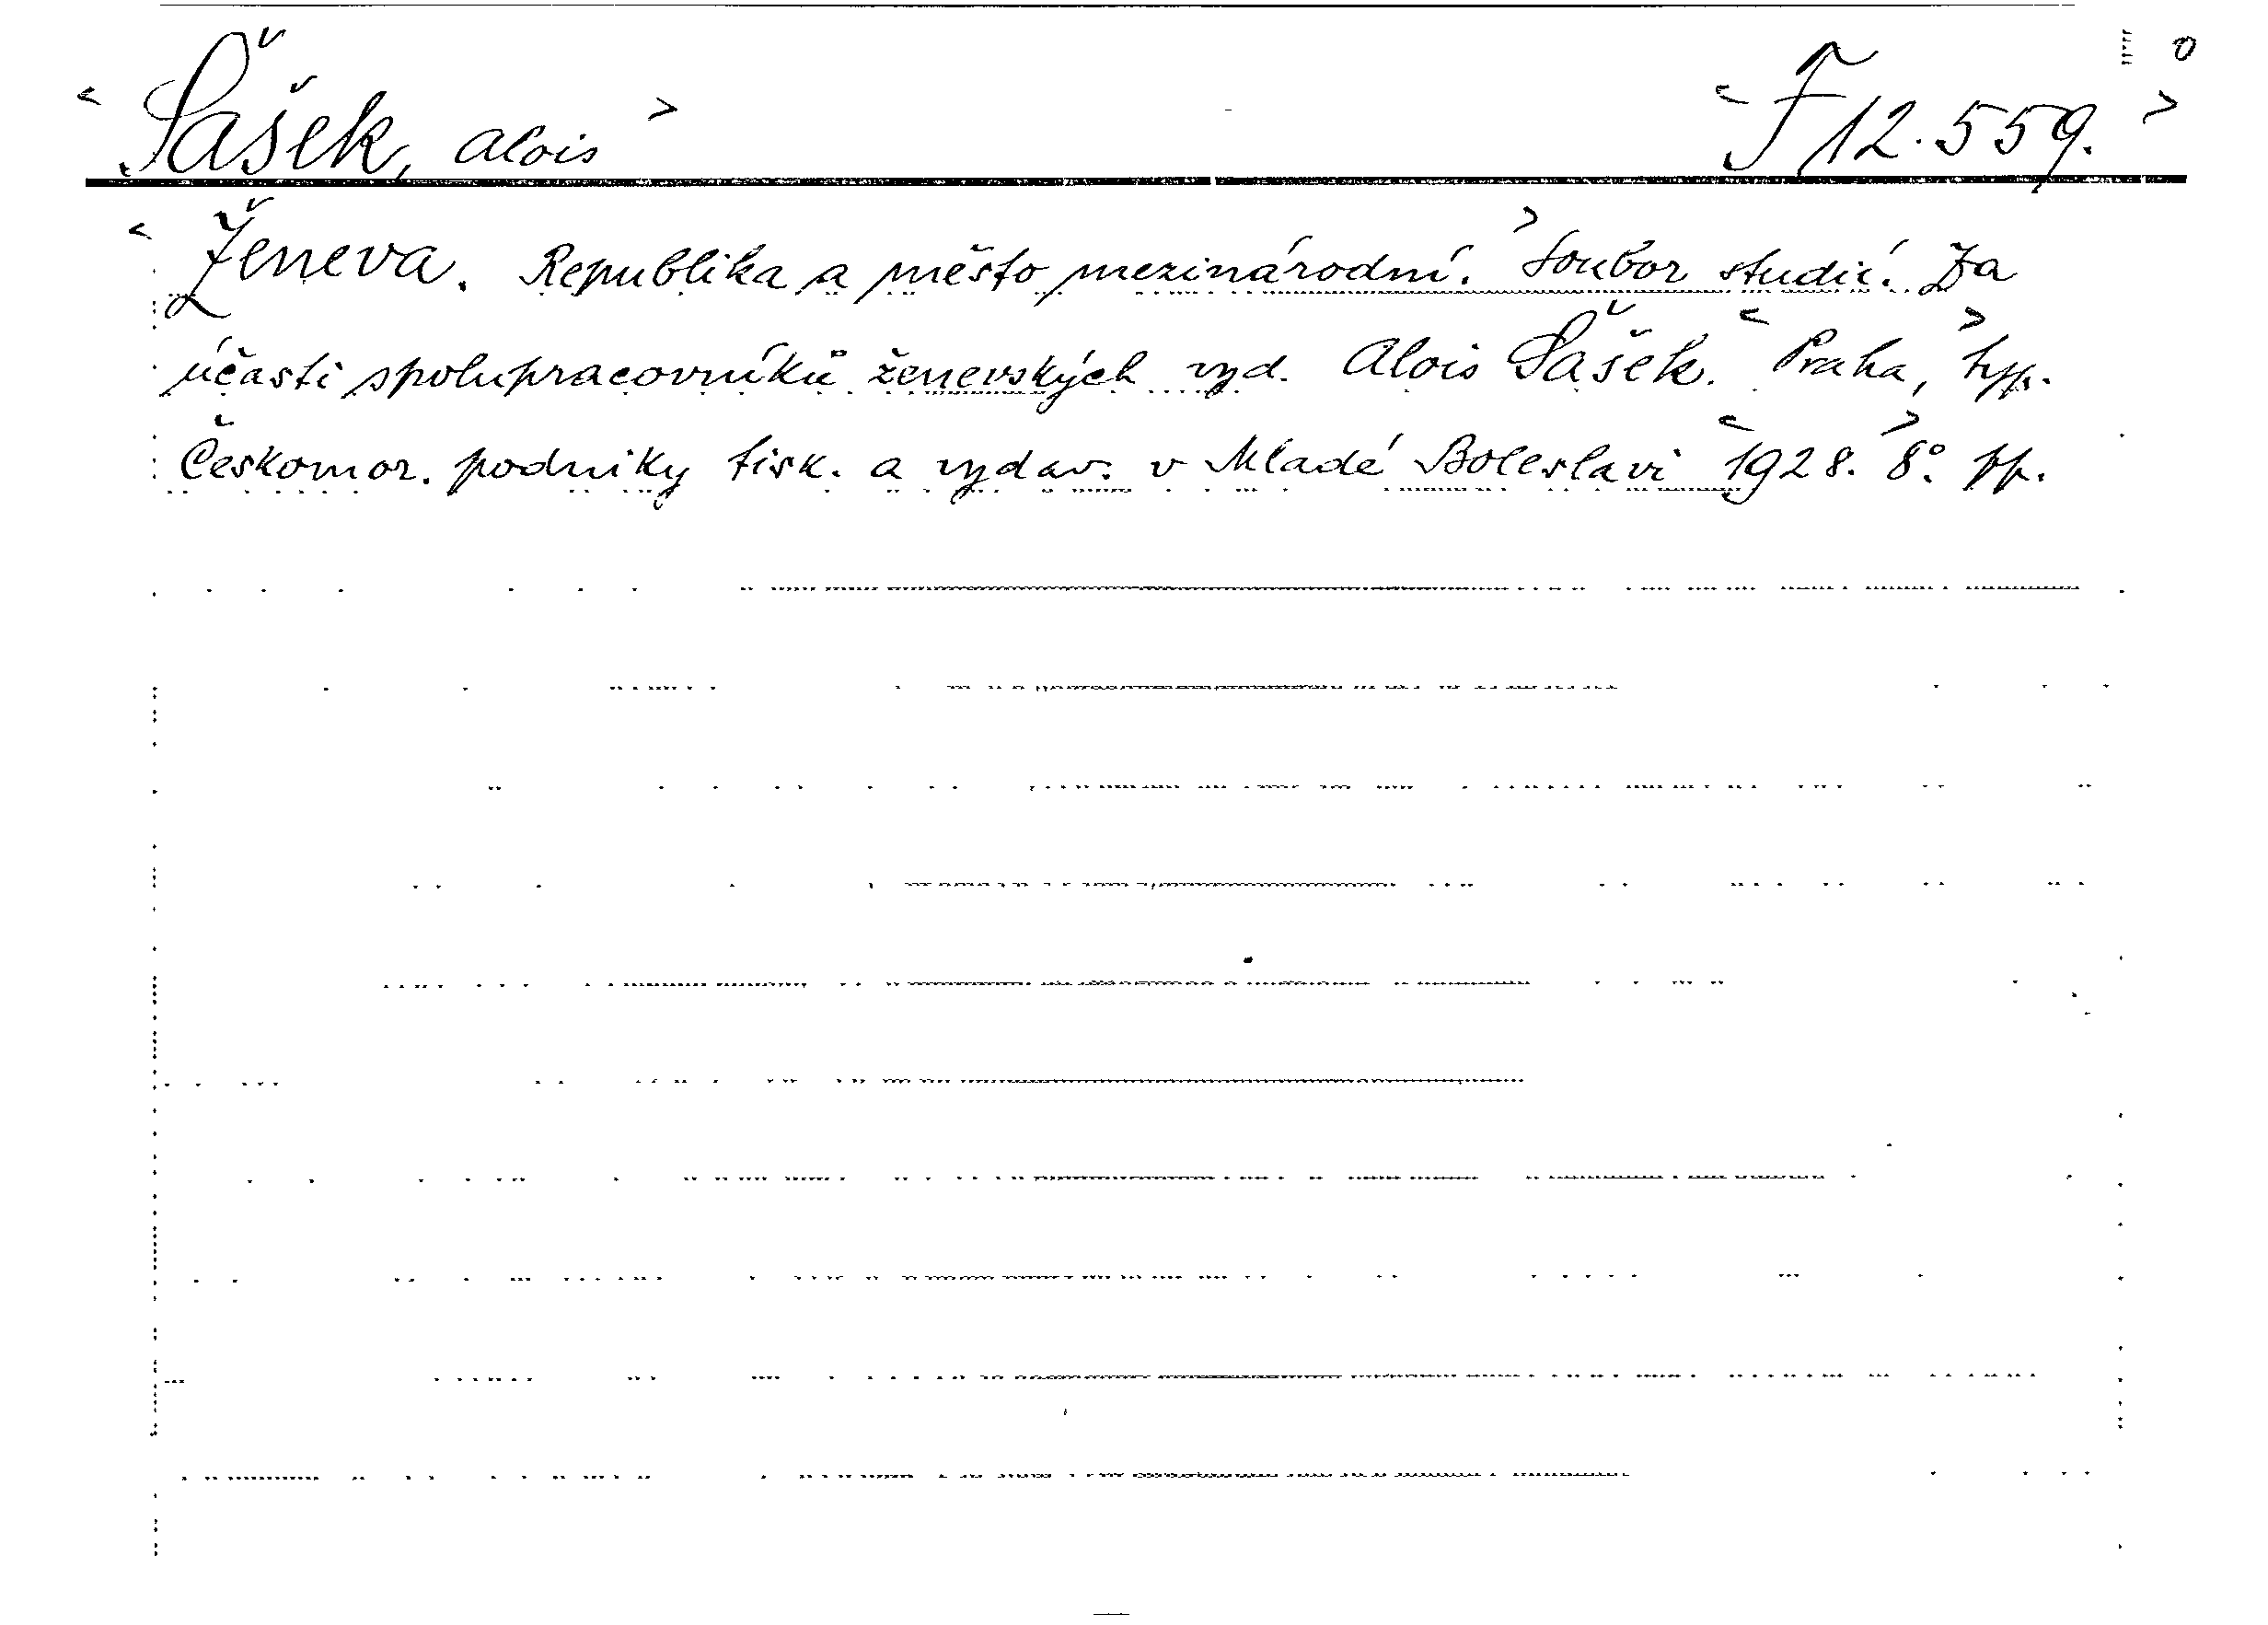 <Šašek, Alois> <F 12.559.> 0
<Ženeva. Republika a město mezinárodní.> Soubor studií. Za
účasti spolupracovníků ženevských vyd. Alois Šašek. <Praha,> typ.
Českomor. podniky tisk. a vydav. v Mladé Boleslavi <1928.> 8°. pp.